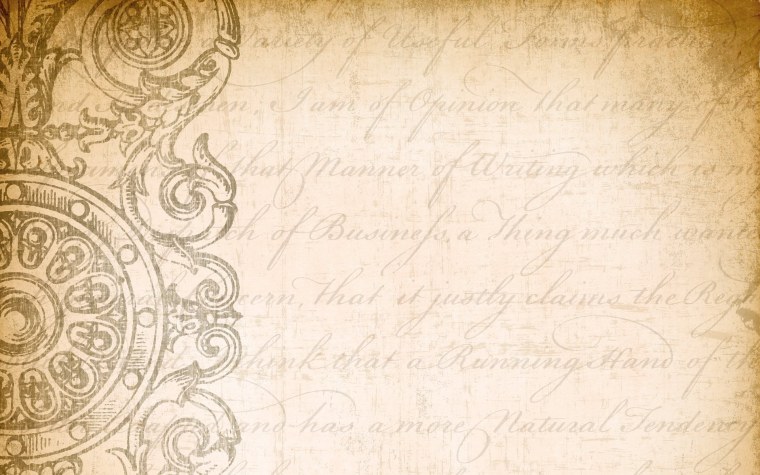 a Variety of Useful Forms practic
Men; I am of Opinion, that many of
that Manner of Writing which is m
of Business, a Thing much wante
that it justly claims the Reg
think that a Running Hand of th
and has a more Natural Tendency